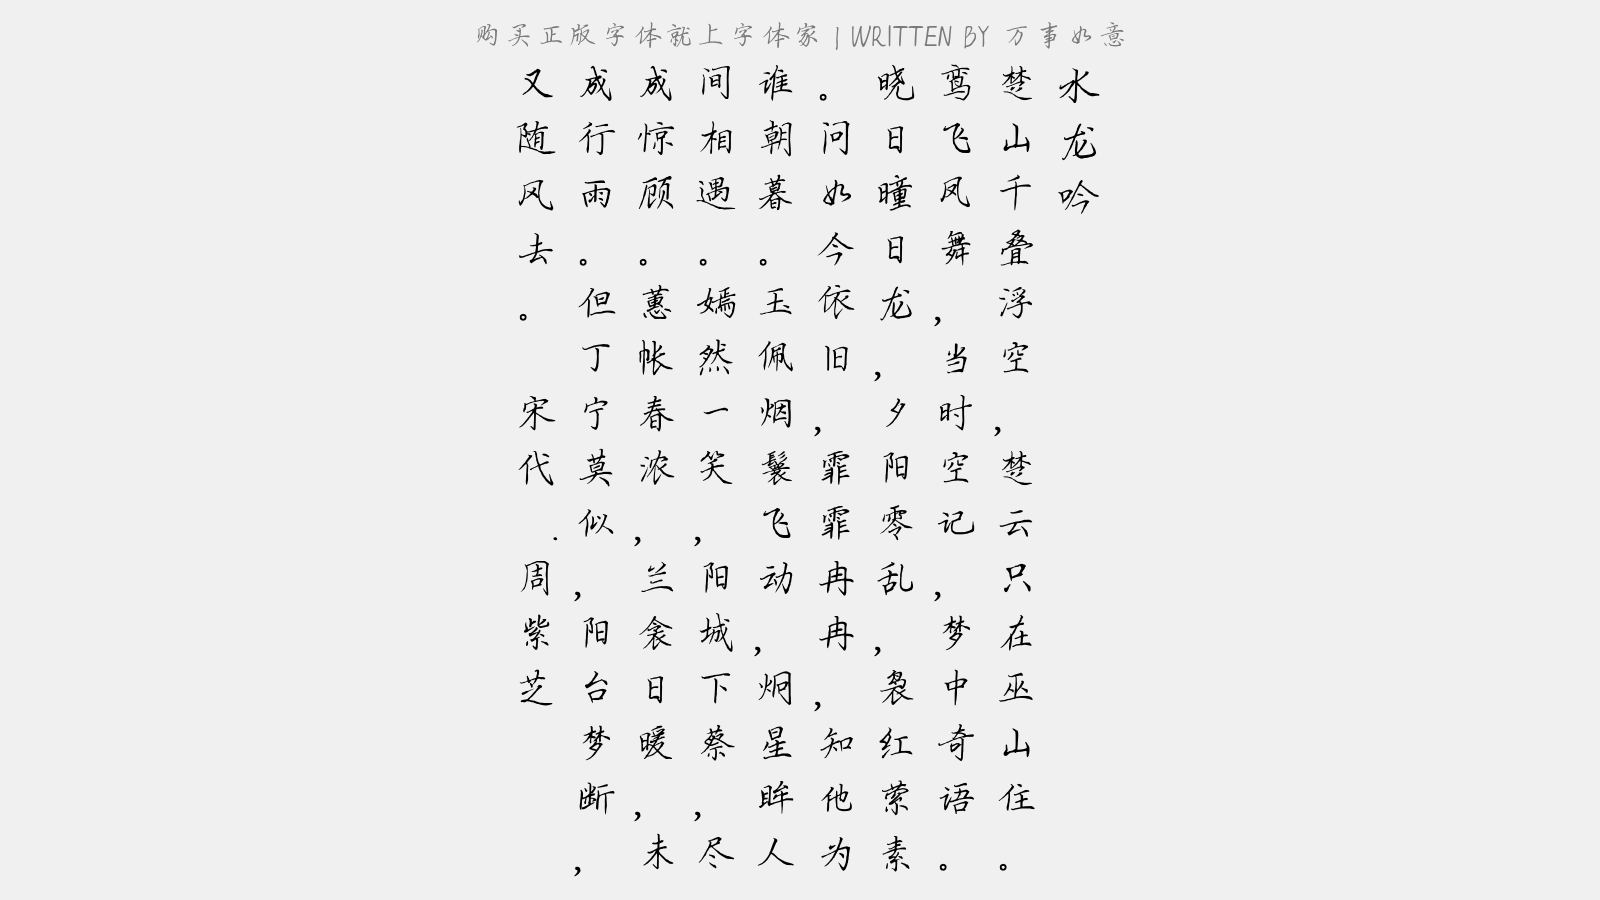 购买正版字体就上字体家 | WRITTEN BY 万事如意
水龙吟
楚山千叠浮空，楚云只在巫山住。
鸾飞凤舞，当时空记，梦中奇语。
晓日曈日龙，夕阳零乱，袅红萦素
。问如今依旧，霏霏冉冉，知他为
谁朝暮。玉佩烟鬟飞动，炯星眸人
间相遇。嫣然一笑，阳城下蔡，尽
成惊顾。蕙帐春浓，兰衾日暖，未
成行雨。但丁宁莫似，阳台梦断，
又随风去。
宋代.周紫芝